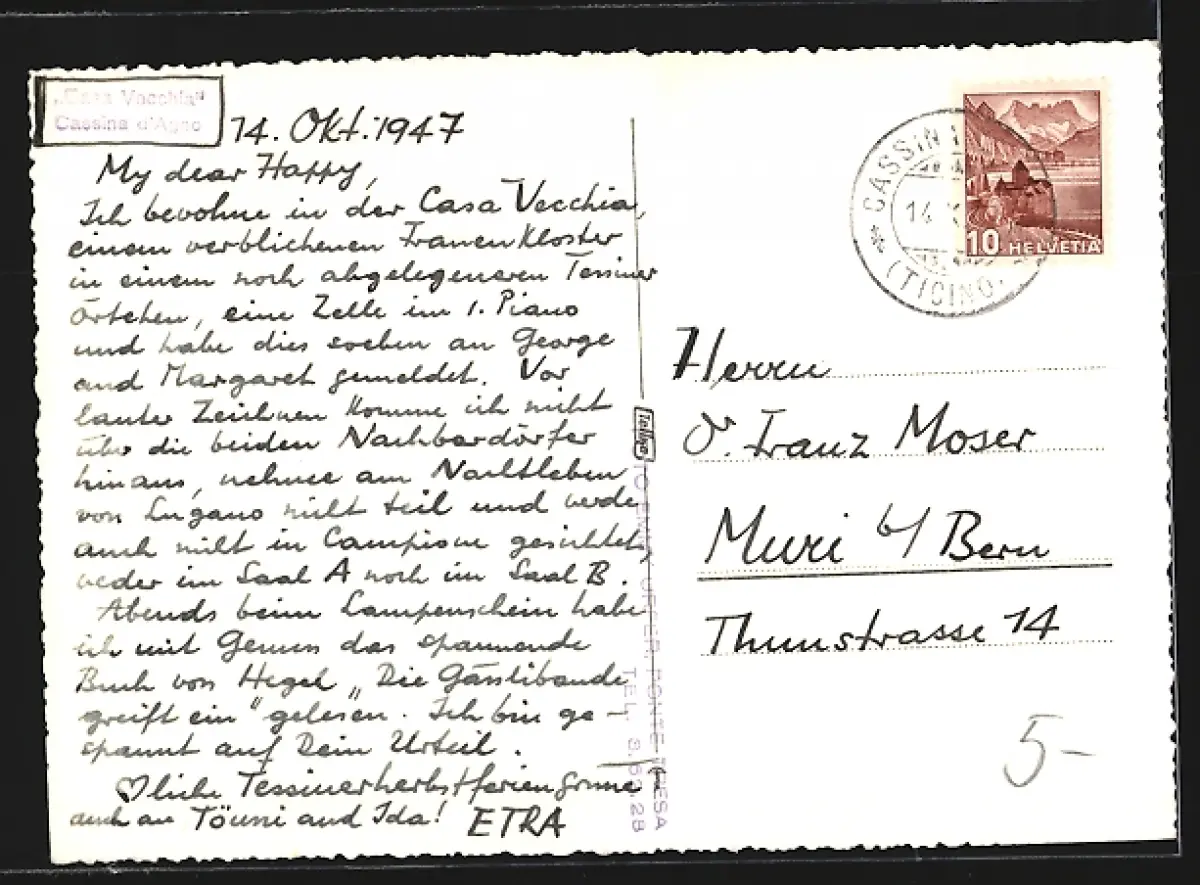 „Casa Vecchia“
Cassina d'Agno
14. Okt. 1947
My dear Happy,
Ich bewohne in der Casa Vecchia,
einem verblichenen Frauenkloster
in einem noch abgelegeneren Tessiner
Örtchen, eine Zelle im 1. Piano
und habe dies soeben an George
and Margaret gemeldet. Vor
lauter Zeichnen komme ich nicht
über die beiden Nachbardörfer
hinaus, nehme am Nachtleben
von Lugano nicht teil und werde
auch nicht in Campione gesichtet,
weder im Saal A noch im Saal B.
Abends beim Lampenschein habe
ich mit Genuss das spannende
Buch von Hegel „Die Gässlibande
greift ein“ gelesen. Ich bin ge-
spannt auf Dein Urteil.
♡liche Tessinerherbstferiengrüsse
auch an Töuni and Ida! ETRA
PONTE TRESA
TEL. 3.60.28
CASSIN
14
(TICINO)
10 HELVETIA
Herrn
Dr. Franz Moser
Muri b/ Bern
Thunstrasse 14
5-